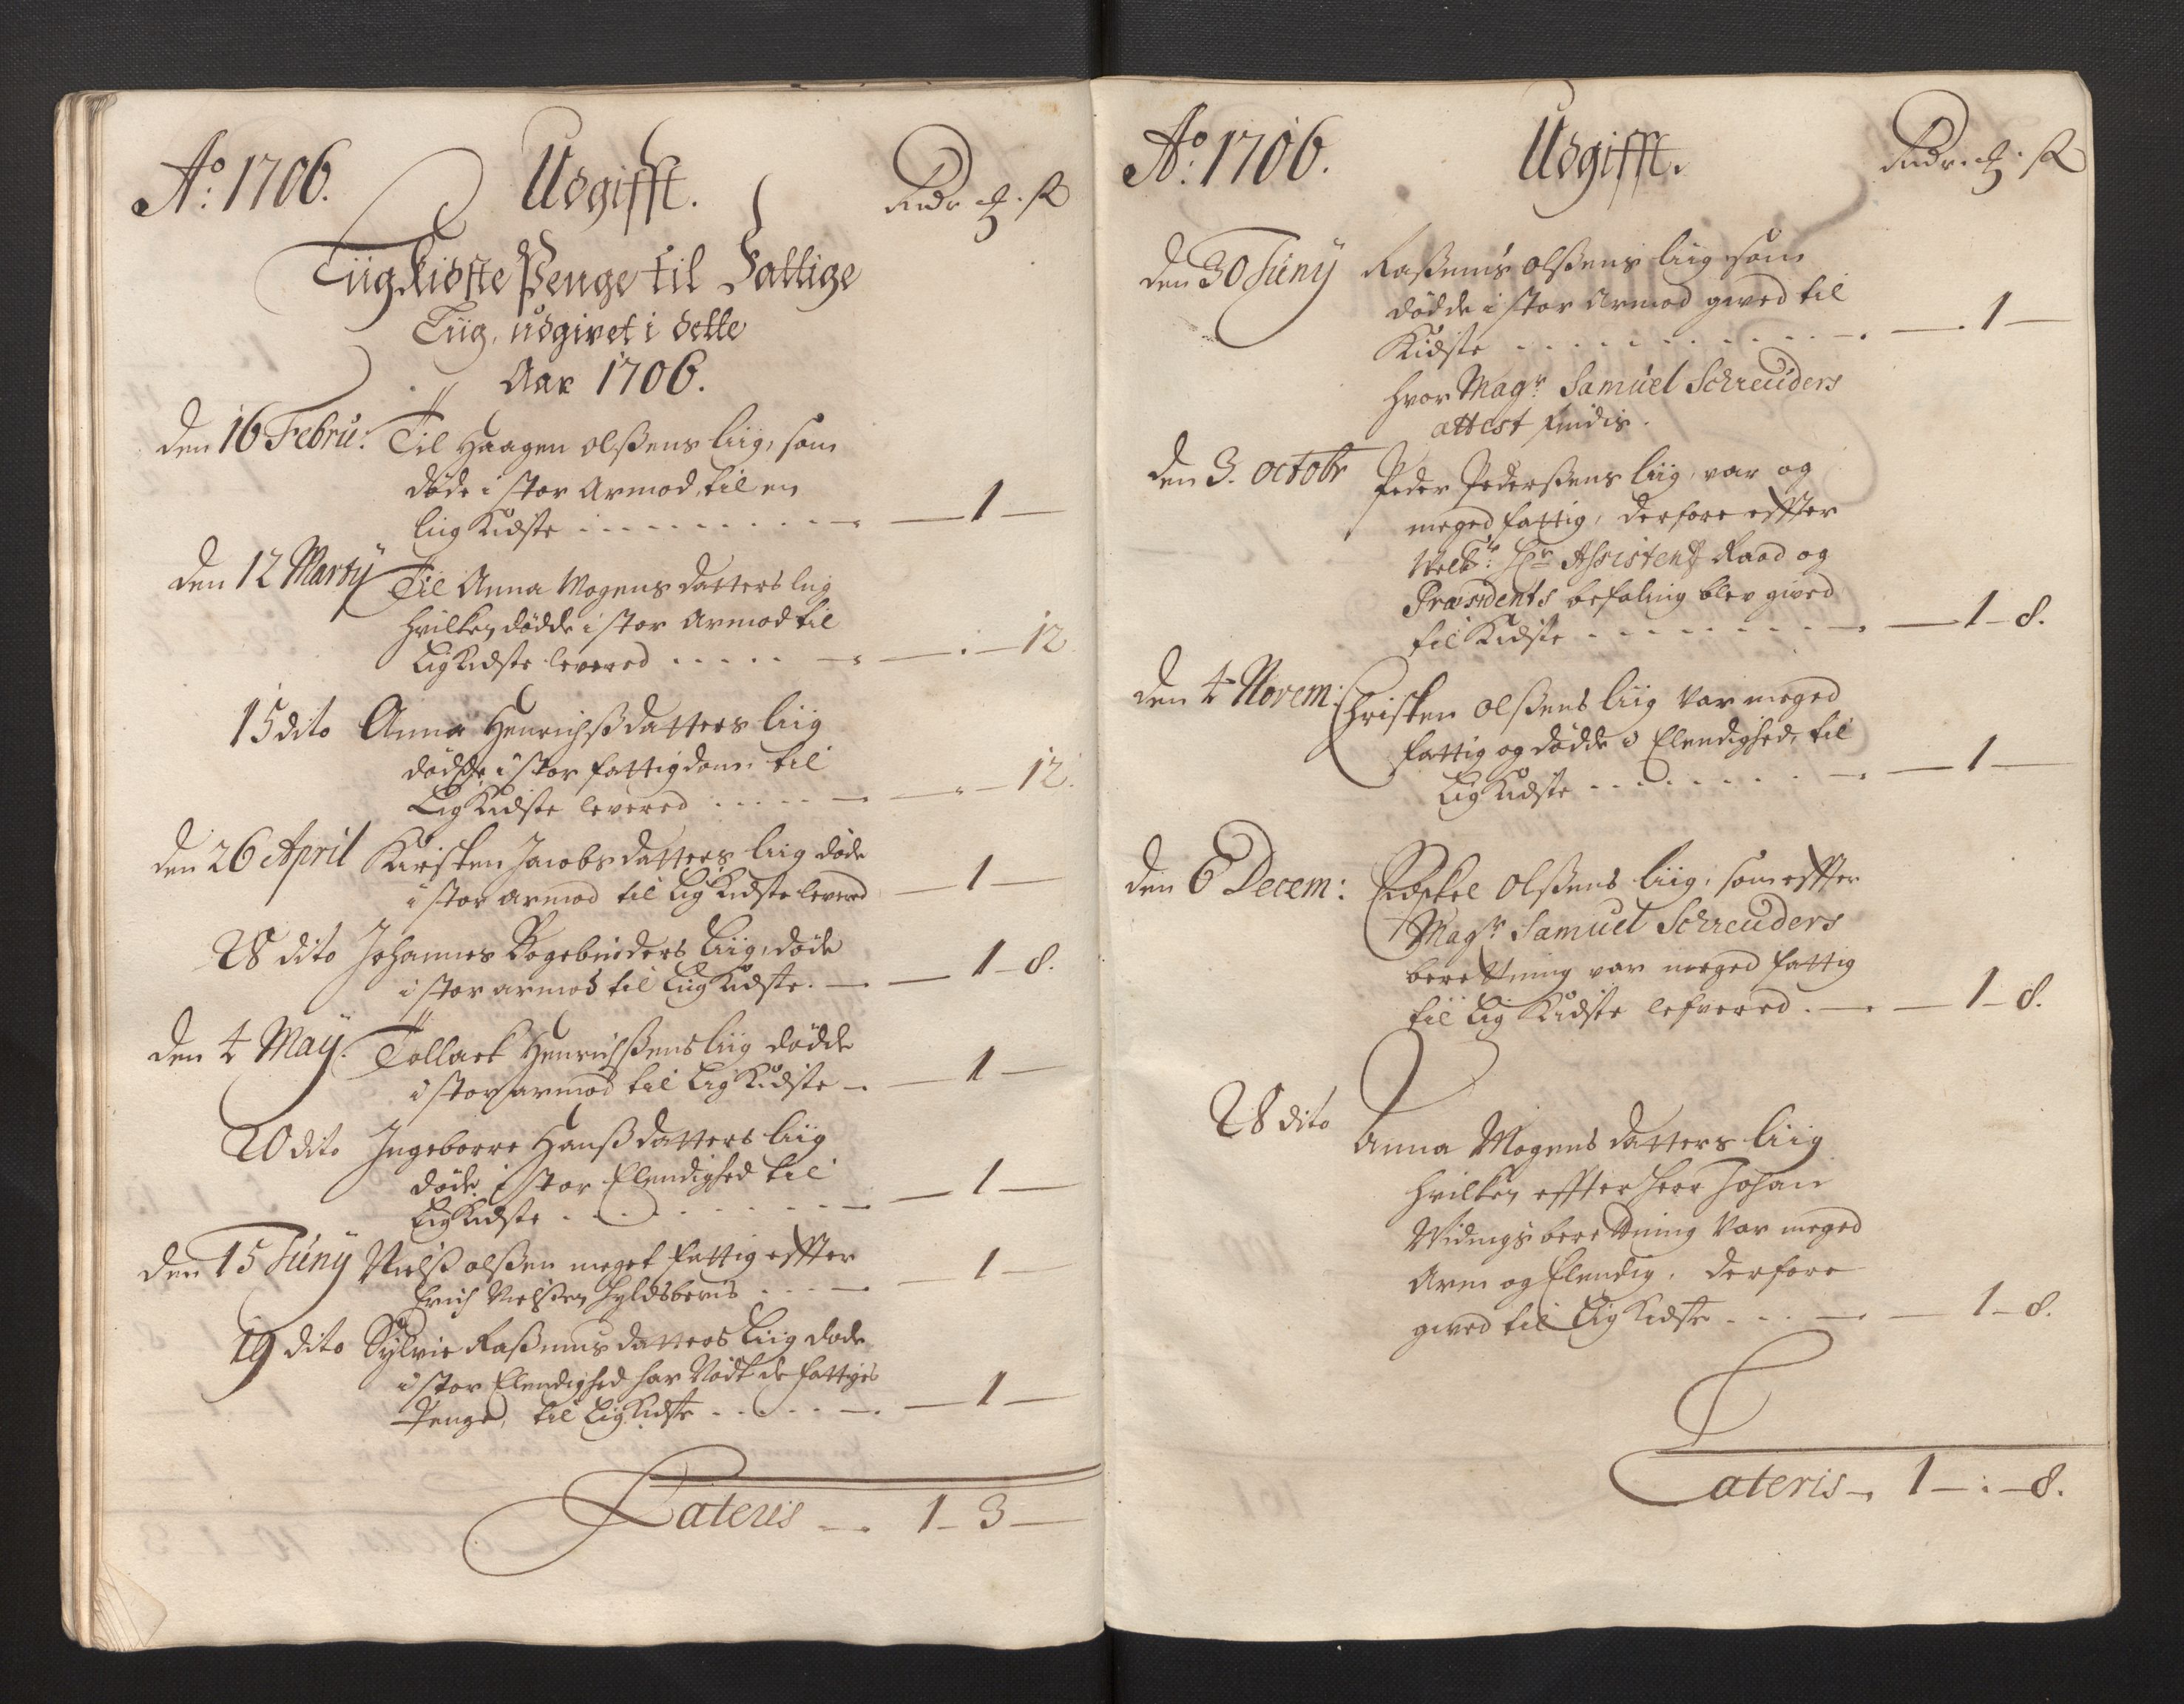 Ao: 1706. Udgifft. Rdr. ꝶ. ß
Liigkiøste Penge til Fattige
Liig, udgivet i dette
Aar 1706.
den 16 Febru: Til Haagen Olßens liig, som
døde i stor Armod, til en
liig Kidste . . . . . . . . . — 1 —
den 12 Martÿ Til Anna Mogens datters liig
hvilken dødde i stor Armod til
Lig Kidste levered . . . . . — 12
15 dito Anna Henrichßdatters liig
dødde i stor fattigdom til
Lig Kidste levered . . . . . — 12.
den 26 April Kirsten Jacobs datters liig døde
i stor armod til Lig Kidste levered — 1 —
28 dito Johannes Bogebinders Liig, døde
i stor armod til Liig Kidste. — 1 — 8.
den 4 Maÿ. Tollack Henrichßens liig dødde
i stor armod til Lig Kidste — 1 —
20 dito Ingeborre Hanßdatters liig
døde i stor Elendighed til
Lig Kidste . . . . . . . — 1 —
den 15 Junÿ Nielß Olßen meget fattig effter
Erich Nielßen Hyldsbeviis . . . — 1 —
19 dito Sylvie Raßmus datters Liig døde
i stor Elendighed har Nødt de fattiges
Penge, til Lig Kidste . . . . . — 1 —
Lateris — 1 — 3 —
Ao: 1706. Udgifft. Rdr. ꝶ. ß
den 30 Junÿ Raßmus Olßens liig som
dødde i stor Armod gived til
Kidste . . . . . . . . . . . — 1 —
hvor Magr. Samuel Schreuders
attest findis.
den 3. octobr Peder Pederßens liig, var og
meged fattig, derfore effter
Velb: Hr. Assistentz Raad og
Præsidents befaling blev gived
til Kidste . . . . . . . . — 1 — 8.
den 4 Novem: Christen Olßens liig var meged
fattig og dødde i Elendighed, til
Lig Kidste . . . . . . . — 1 —
den 6 Decem: Olßens liig, som effter
Magr. Samuel Schreuders
berettning var meged fattig
til Lig Kidste lefvered . — 1 — 8.
28 dito Anna Mogens datters liig
hvilken effter Herr Johan
Widings berettning var meged
Arm og Elendig, derfore
gived til Lig Kidste . . . — 1 — 8.
Lateris — 1 — : — 8.